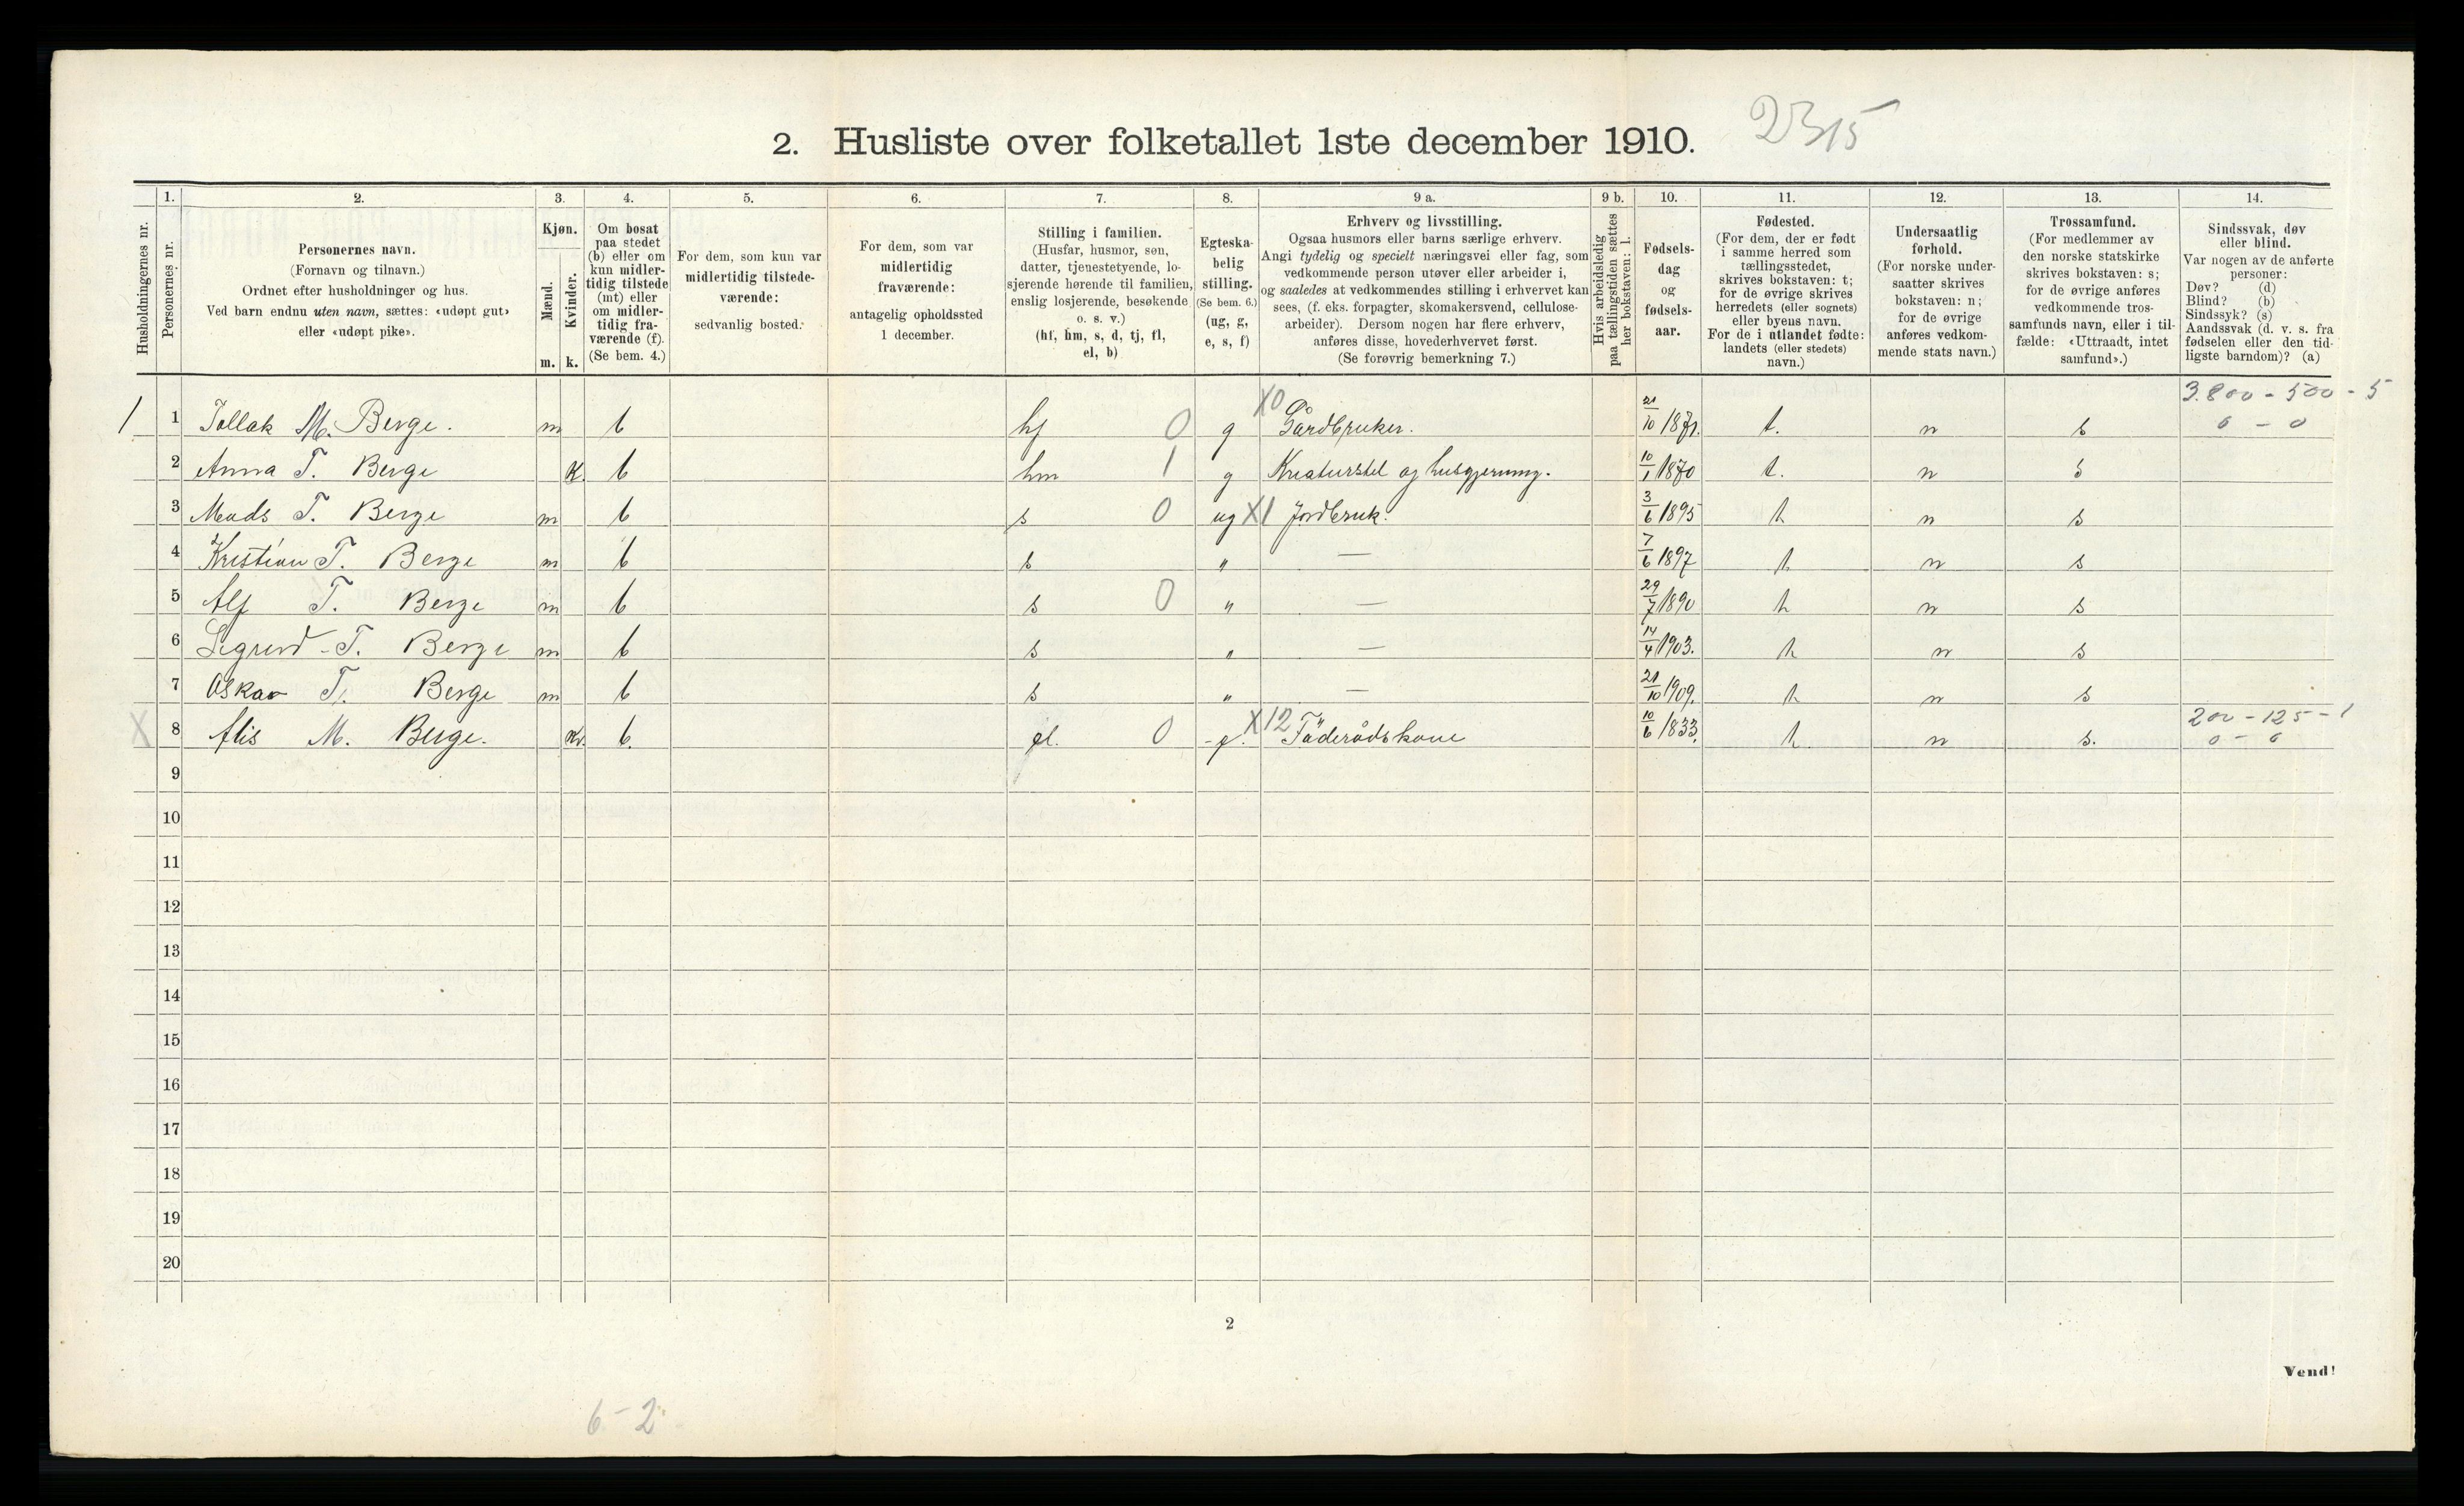 2. Husliste over folketallet 1ste december 1910. 2315
Husholdningernes nr.
1. Personernes nr.
2. Personernes navn. (Fornavn og tilnavn.) Ordnet efter husholdninger og hus. Ved barn endnu uten navn, sættes: «udøpt gut» eller «udøpt pike».
3. Kjøn. Mænd. m. Kvinder. k.
4. Om bosat paa stedet (b) eller om kun midlertidig tilstede (mt) eller om midlertidig fraværende (f). (Se bem. 4.)
5. For dem, som kun var midlertidig tilstedeværende: sedvanlig bosted.
6. For dem, som var midlertidig fraværende: antagelig opholdssted 1 december.
7. Stilling i familien. (Husfar, husmor, søn, datter, tjenestetyende, losjerende hørende til familien, enslig losjerende, besøkende o. s. v.) (hf, hm, s, d, tj, fl, el, b)
8. Egteskabelig stilling. (Se bem. 6.) (ug, g, e, s, f)
9 a. Erhverv og livsstilling. Ogsaa husmors eller barns særlige erhverv. Angi tydelig og specielt næringsvei eller fag, som vedkommende person utøver eller arbeider i, og saaledes at vedkommendes stilling i erhvervet kan sees, (f. eks. forpagter, skomakersvend, cellulosearbeider). Dersom nogen har flere erhverv, anføres disse, hovederhvervet først. (Se forøvrig bemerkning 7.)
9 b. Hvis arbeidsledig paa tællingstiden sættes her bokstaven: l.
10. Fødselsdag og fødselsaar.
11. Fødested. (For dem, der er født i samme herred som tællingsstedet, skrives bokstaven: t; for de øvrige skrives herredets (eller sognets) eller byens navn. For de i utlandet fødte: landets (eller stedets) navn.)
12. Undersaatlig forhold. (For norske undersaatter skrives bokstaven: n; for de øvrige anføres vedkommende stats navn.)
13. Trossamfund. (For medlemmer av den norske statskirke skrives bokstaven: s; for de øvrige anføres vedkommende trossamfunds navn, eller i tilfælde: «Uttraadt, intet samfund».)
14. Sindssvak, døv eller blind. Var nogen av de anførte personer: Døv? (d) Blind? (b) Sindssyk? (s) Aandssvak (d. v. s. fra fødselen eller den tidligste barndom)? (a)
1 1 Tollak M. Berge. m b hf 0 g X0 Gårdbruker. 21/10 1871. t. n s 3.800 - 500 - 5 0 - 0
2 Anna T. Berge k. b hm 1 g Kreaturstel og husgjerning. 10/1 1870 t. n s
3 Mads T. Berge m b s 0 ug X1 Jordbruk. 3/6 1895 t n s
4 Kristian T. Berge m b s " — 7/6 1897 t n s
5 Alf T. Berge m b s 0 " — 29/7 1890 t n s
6 Sigurd T. Berge m b s " — 14/4 1903. t n s
7 Oskar T. Berge m b s " — 21/10 1909. t n s
X 8 Alis M. Berge. k. b. fl. 0 X12 Föderådskone 10/6 1833. t. n s. 200 - 125 - 1 0 - 0
9
10
11
12
13
14
15
16
17
18
19
20
2
Vend!
6 - 2